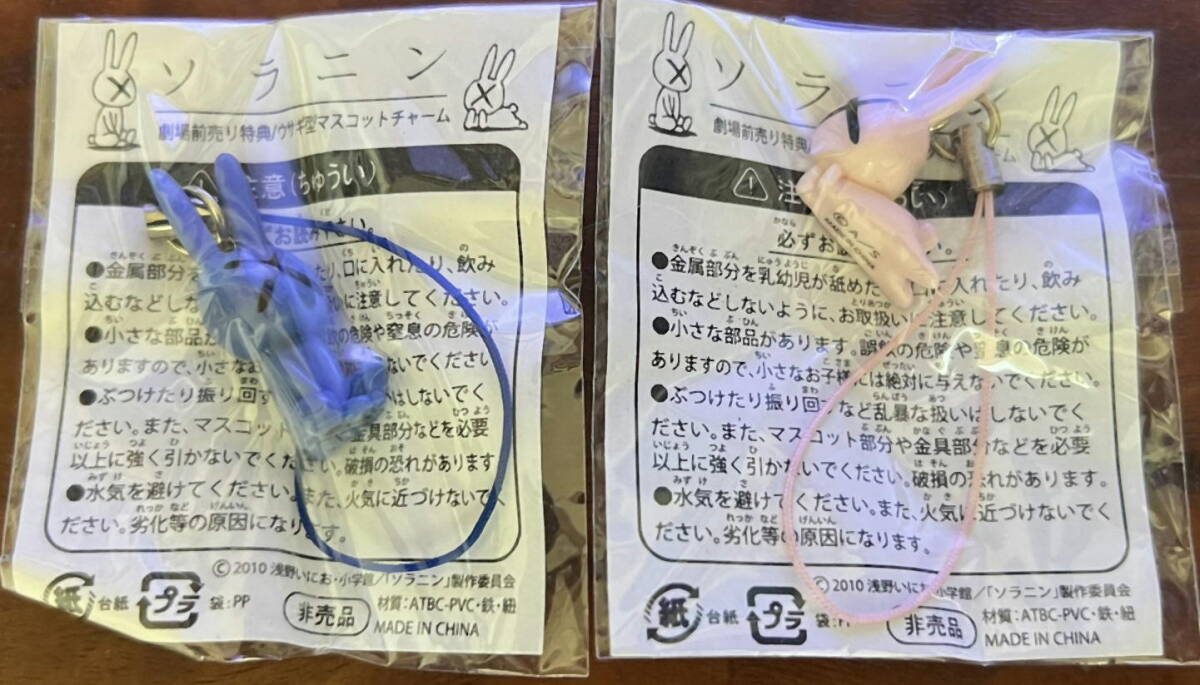 ソラニン
劇場前売り特典/ウサギ型マスコットチャーム
注意(ちゅうい)
お読み
さい。
●金属部分を
たり、口に入れたり、飲み
込むなどしな
に注意してください。
●小さな部品が
の危険や窒息の危険が
ありますので、小さなお
ないでください
●ぶつけたり振り回す
はしないでく
ださい。また、マスコット
金具部分などを必要
以上に強く引かないでくださ
。破損の恐れがあります
●水気を避けてください。また、火気に近づけないでく
ださい。劣化等の原因になります。
©2010 浅野いにお・小学館/「ソラニン」製作委員会
紙 台紙 プラ 袋:PP 非売品 材質:ATBC-PVC・鉄・紐
MADE IN CHINA
ソラ
劇場前売り特典/
ーム
注
い)
必ずお読
い。
●金属部分を乳幼児が舐めた
口に入れたり、飲み
込むなどしないように、お取扱いに注意してください。
●小さな部品があります。誤飲の危険や窒息の危険が
ありますので、小さなお子様には絶対に与えないでください。
●ぶつけたり振り回すなど乱暴な扱いはしないでく
ださい。また、マスコット部分や金具部分などを必要
以上に強く引かないでください。破損の恐れがあります。
●水気を避けてください。また、火気に近づけないでく
ださい。劣化等の原因になります。
©2010 浅野いにお・小学館/「ソラニン」製作委員会
紙 台紙 プラ 袋:PP 非売品 材質:ATBC-PVC・鉄・紐
MADE IN CHINA
©A・I/S